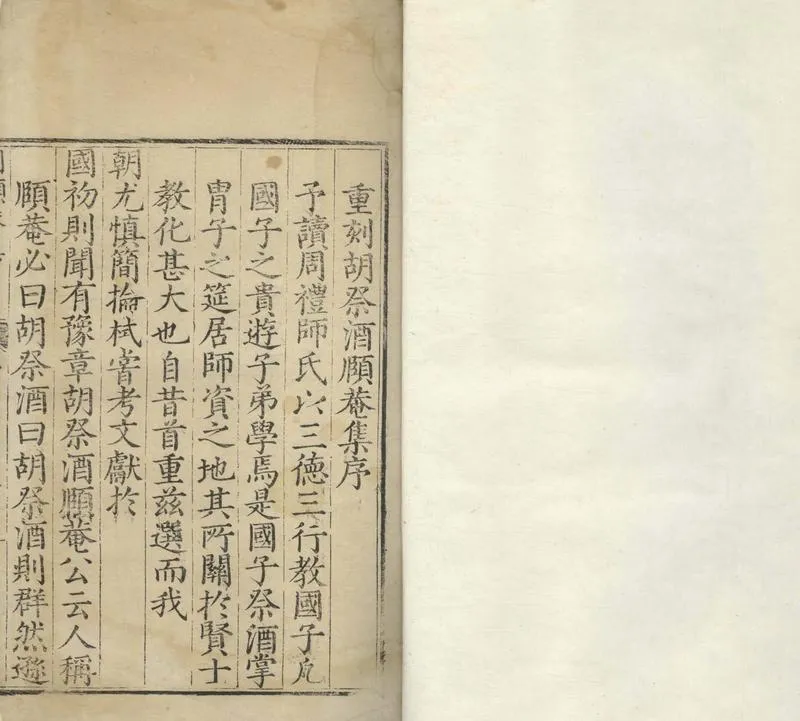 重刻胡祭酒頤菴集序
予讀周禮師氏以三德三行教國子凡
國子之貴遊子弟學焉是國子祭酒掌
胄子之筵居師資之地其所關於賢士
教化甚大也自昔首重玆選而我
朝尤慎簡掄栻嘗考文獻於
國初則聞有豫章胡祭酒頤菴公云人稱
頤菴必曰胡祭酒曰胡祭酒則群然遜